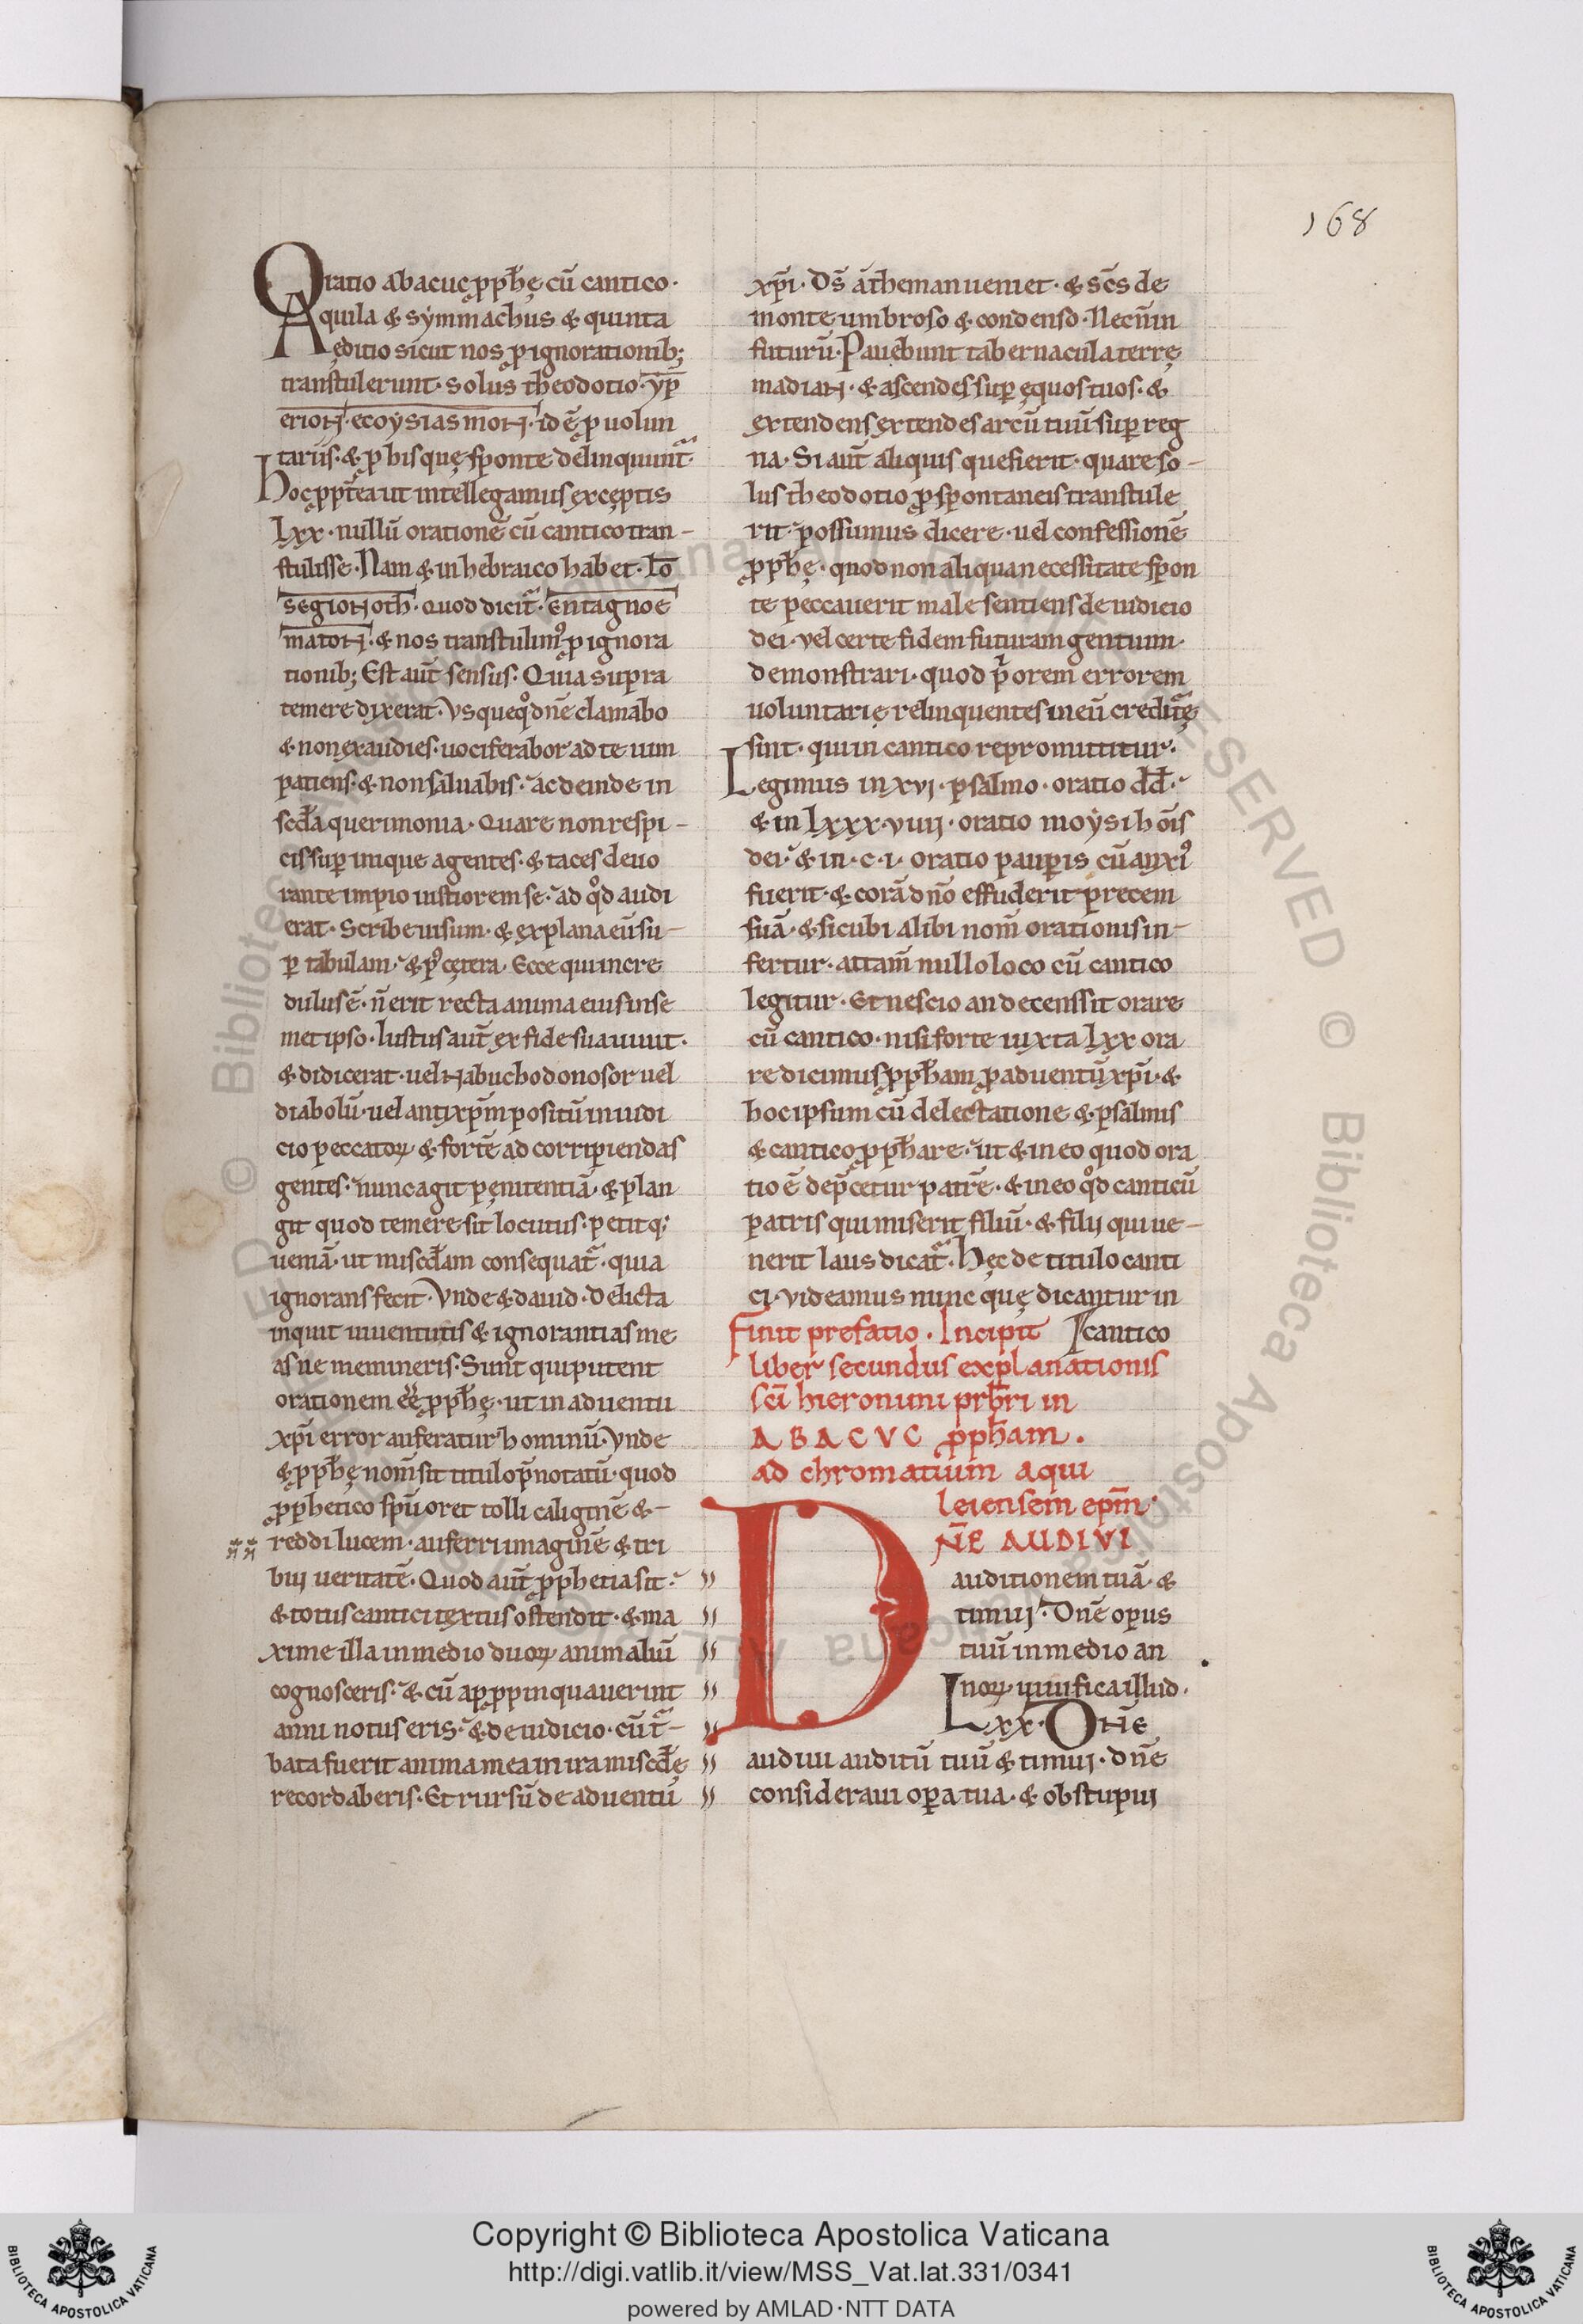 168
Oratio abacuc ꝓph̄ę cū cantico·
Aquila & sẏmmachus & quinta
ęditio sicut nos ꝓ ignorationib;
transtulerunt· solus theodotio· ẏꝑ
erioN· ecoẏsiasmoN· id ē ꝓ uolun
tariis· & ꝓ his quę sponte delinquunt᷑·
Hoc ꝓpt̄ea ut intellegamus exceptis
Lxx· nullū orationē cū cantico tran-
stulisse· Nam & in hebraico habet· Lō
segioNoth̄· quod dicit᷑· Entagnoe
matoN· & nos transtulimꝰ ꝓ ignora
tionib; Est aut̄ sensus· Quia supra
temere dixerat· Vsquequo dn̄e clamabo
& non exaudies· uociferabor ad te uim
patiens· & non saluabis· ac deinde in
scd̄a querimonia· Quare non respi-
cis suꝑ inique agentes· & taces deuo
rante impio iustiorem se· ad qͦd audi
erat· Scribe uisum· & explana eū su-
ꝑ tabulam· & pꝰ cętera· Ecce qui incre
dulus ē· n̄ erit recta anima eius in se
met ipso· Iustus aut̄ ex fide sua uiuit·
& didicerat· uel Nabuchodonosor uel
diabolū· uel antixp̄m positū in iudi
cio peccatoꝝ & fortē ad corripiendas
gentes· nunc agit pęnitentiā· & plan
git quod temere sit locutus· petitq;
ueniā· ut miscd̄am consequat᷑· quia
ignorans fecit· Vnde & dauid· Delicta
inquit iuuentutis & ignorantias me
as ne memineris· Sunt qui putent
orationem ēē ꝓph̄ę· ut in aduentu
xp̄i error auferatur hominū· Vnde
& ꝓph̄ę nom̄ sit titulo p̄notatū· quod
ꝓphetico sp̄u oret tolli caliginē &-
reddi lucem· auferri imaginē & tri
bui ueritatē· Quod aut̄ ꝓphetia sit·
& totus cantici textus ostendit· & ma
xime illa in medio duoꝝ animaliū
cognosceris· & cū apꝓpinquauerint
anni notus eris· & de iudicio· cū t᷑-
bata fuerit anima mea in ira miscd̄ę
recordaberis· Et rursū de aduentu
xp̄i· Ds̄ a them̄an ueniet· & sc̄s de
monte umbroso & condenso· Necn̄ in
futurū· Pauebunt tabernacula terrę
madiaN· & ascendes suꝑ ęquos tuos· &
extendens extendes arcū tuū suꝑ reg
na· Si aut̄ aliquis quesierit· quare so-
lus theodotio ꝓ spontaneis transtule
rit· possumus dicere· uel confessionē
ꝓph̄ę· quod non aliqua necessitate spon
te peccauerit male sentiens de iudicio
dei· vel certe fidem futuram gentium·
demonstrari· quod priorem errorem
uoluntarię relinquentes in eū credit᷑ę
sint· qui in cantico repromittitur·
Legimus in xvi· psalmo· oratio dd̄·
& in Lxxx·viiij· oratio moẏsi hōis
dei· & in·c·i· oratio pauꝑis cū anxiꝰ
fuerit· & corā dn̄o effuderit precem
suā· & sicubi alibi nom̄ orationis in-
fertur· attam̄ nullo loco cū cantico
legitur· Et nescio an decenssit orare
cū cantico· nisi forte iuxta Lxx ora
re dicimus ꝓph̄am ꝓ aduentu xp̄i· &
hoc ipsum cū delectatione & psalmis
& cantico ꝓph̄are· ut & in eo quod ora
tio ē dep̄cetur patrē· & in eo qͦd canticū
patris qui miserit filiū· & filii qui ue-
nerit laus dicat᷑· Hęc de titulo canti
ci· videamus nunc quę dicantur in
Finit prefatio· Incipit cantico
liber secundus explanationis
sc̄i hieronimi prb̄ri in
ABACVC ꝓph̄am·
ad chromatium aqui
leiensem ep̄m·
DN̄E AUDIVI
auditionem tuā· &
timui· Dn̄e opus
tuū in medio an
noꝝ uiuifica illud·
Lxx· DN̄E
audiui auditū tuū & timui· dn̄e
consideraui oꝑa tua· & obstupui
Copyright © Biblioteca Apostolica Vaticana
http://digi.vatlib.it/view/MSS_Vat.lat.331/0341
powered by AMLAD·NTT DATA